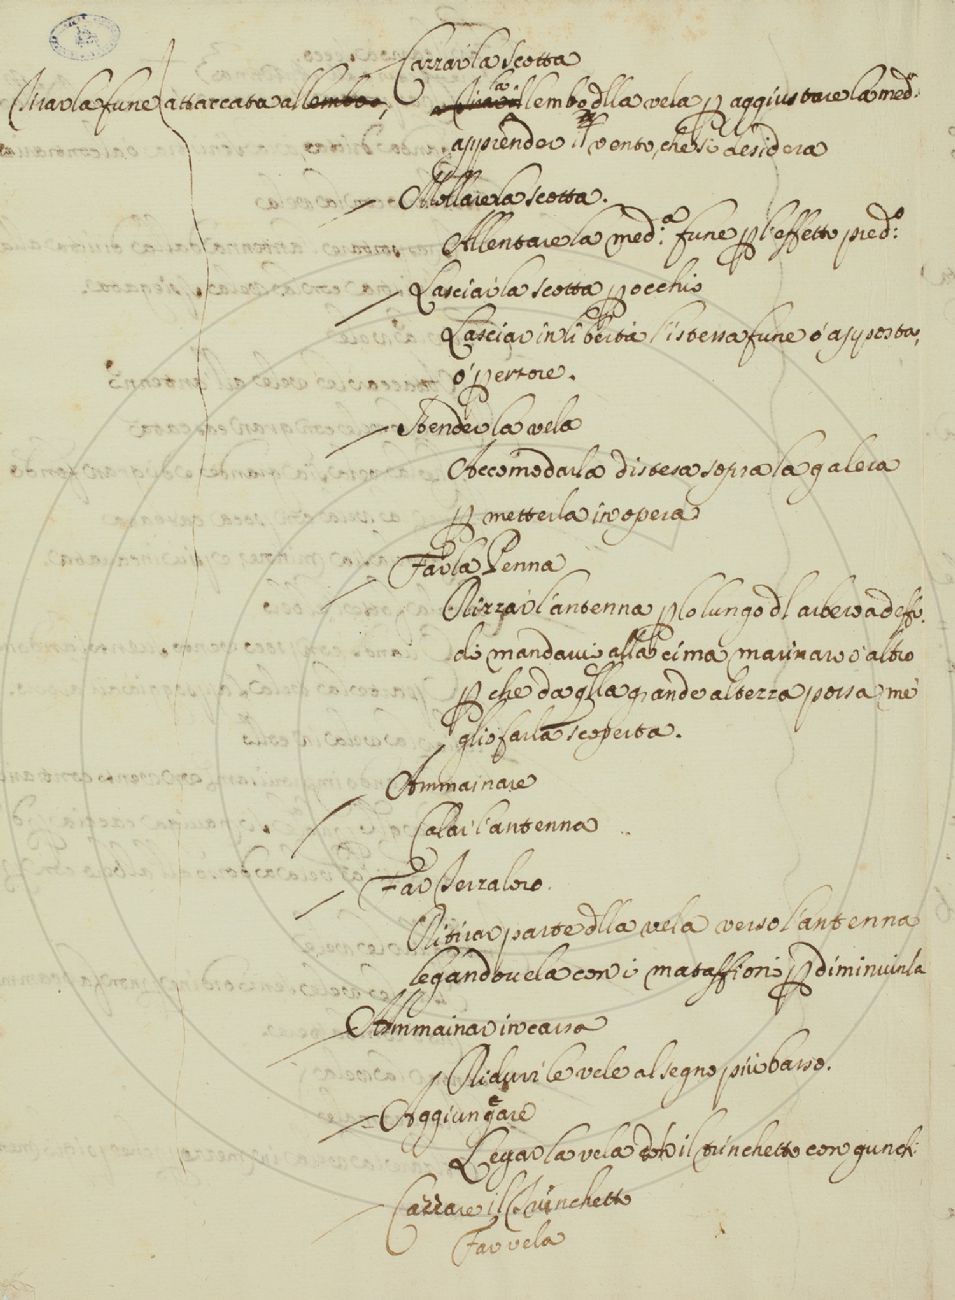 Cazzar la scotta
Tirar la fune attaccata all embo la Tirar all lembo dlla vela p aggiustare la med.ª
apprender il vento, che si desidera
Mollare la scotta.
Allentare la med.ª fune p l'effetto pred.º
Lasciar la scotta p occhio
Lasciar in libertà l'istessa fune ò a posta,
ò p errore.
Stender la vela
Accomodarla distesa sopra la galera
p metterla in opera
Far la Penna
Rizzar l'antenna p lo lungo dl arbero ad eff.º
di mandarui alla cima marinaro ò altro
p che da qlla grande altezza possa me
glio far la scoperta.
Ammainare
Calar l'antenna
Far Terzaloro.
Ritirar parte dlla vela verso l'antenna
legandovela con i mataffioni p diminuirla
Ammainar in carro
Ridurre le vele al segno più basso.
Aggiungare
Legar la vela dtª il trinchetto con gunchi
Cazzare il Trinchetto
Far vela